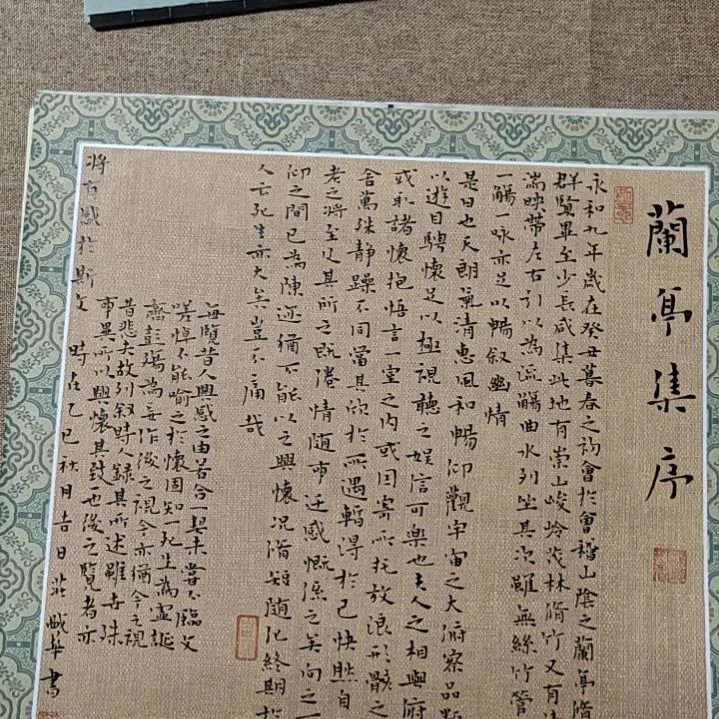 蘭亭集序
永和九年歲在癸丑暮春之初會於會稽山陰之蘭亭脩
群賢畢至少長咸集此地有崇山峻岭茂林脩竹又有清
湍映帶左右引以為流觴曲水列坐其次雖無絲竹管
一觴一咏亦足以暢叙幽情
是日也天朗氣清惠風和暢仰觀宇宙之大俯察品類
以遊目騁懷足以極視聽之娱信可樂也夫人之相與俯
或取諸懷抱悟言一室之内或因寄所托放浪形骸之
舍萬殊静躁不同當其欣於所遇暫得於己快然自
老之將至及其所之既倦情随事迁感慨係之矣向之
仰之間已為陳迹猶不能以之興懷況脩短随化終期於
人云死生亦大矣豈不痛哉
每覽昔人興感之由若合一契未嘗不臨文
嗟悼不能喻之於懷固知一死生為虛誕
齊彭殤為妄作後之視今亦猶今之視
昔悲夫故列叙時人録其所述雖世殊
事異所以興懷其致一也後之覽者亦
將有感於斯文 時占乙巳秋月吉日莊華書